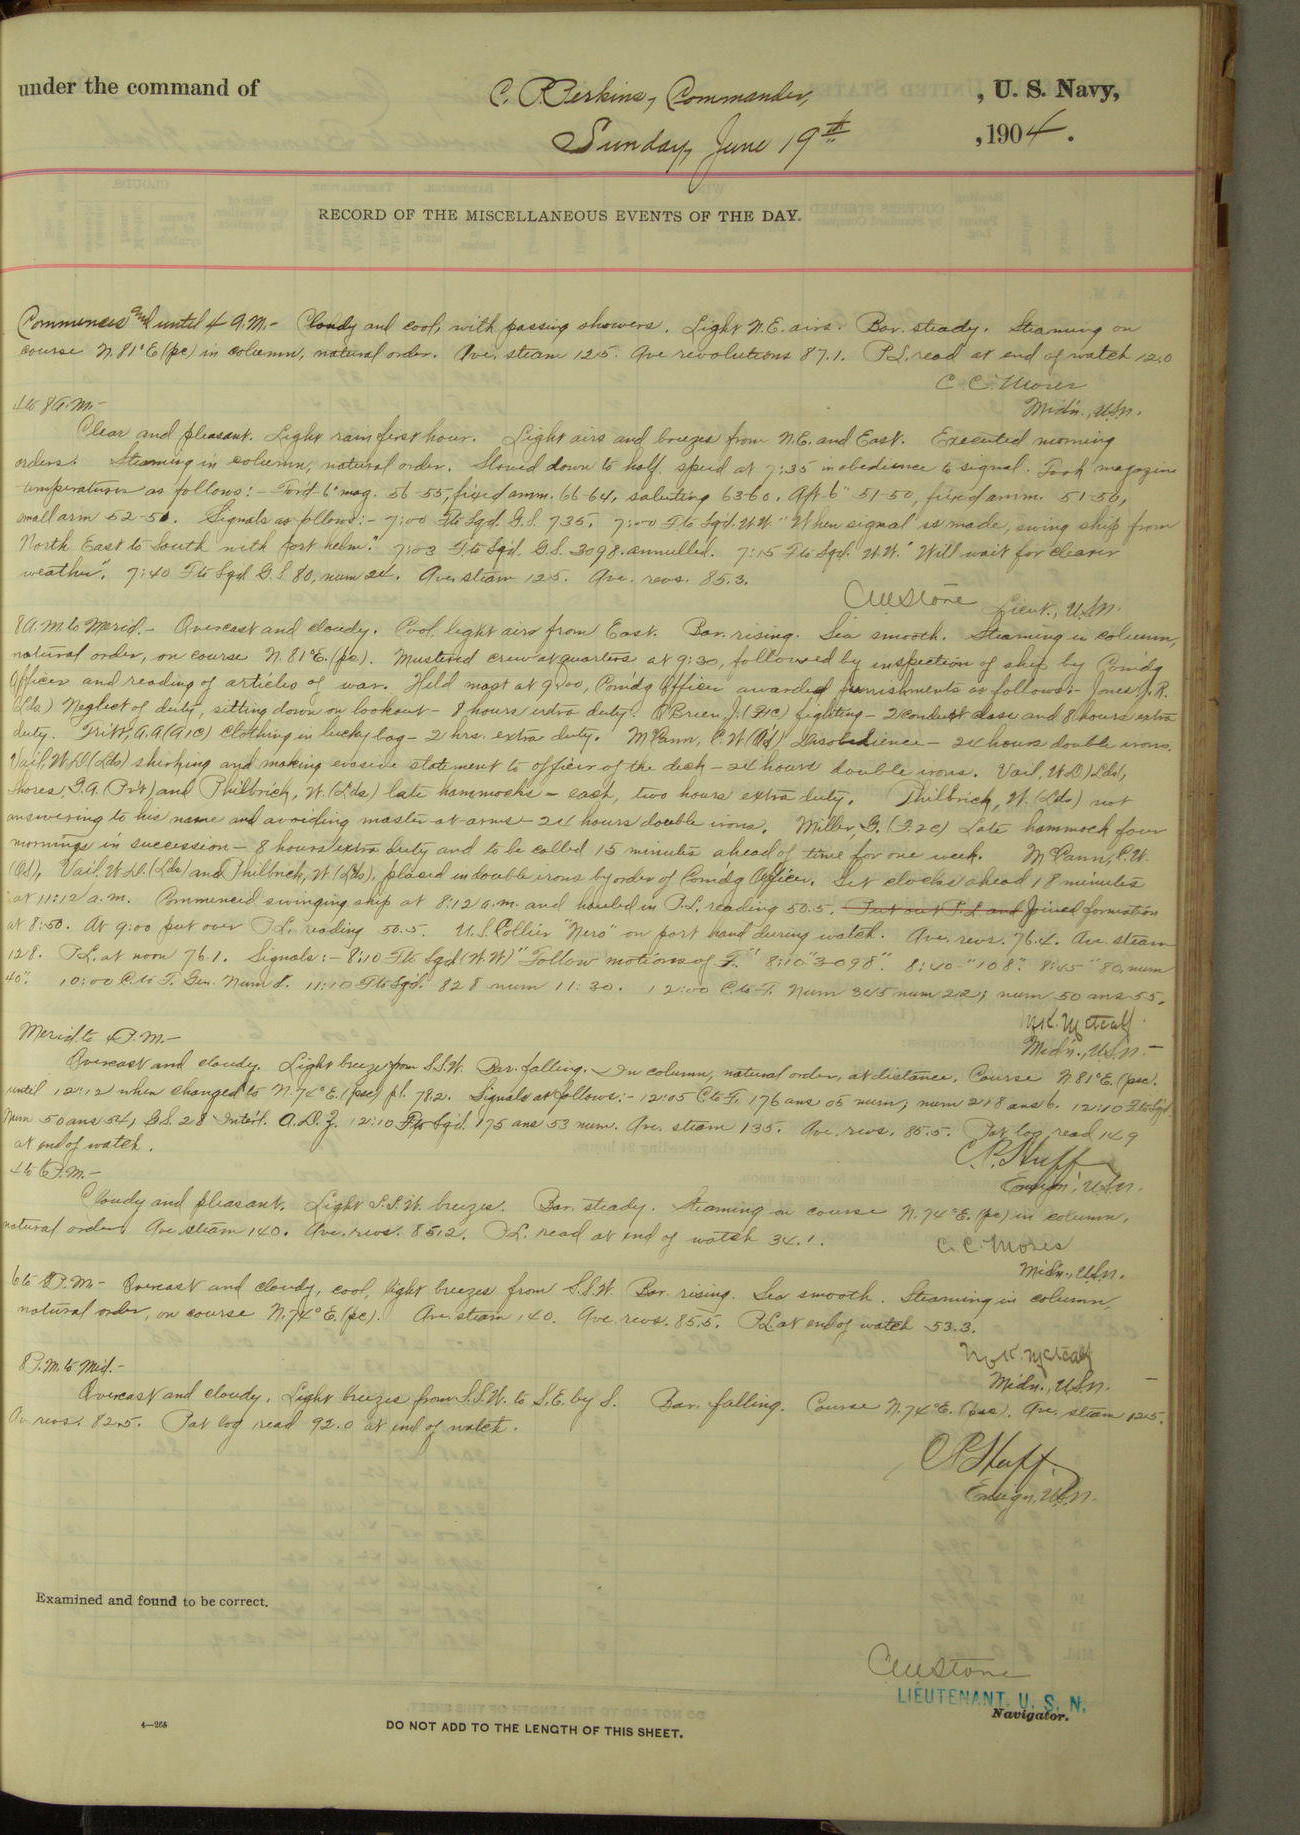 under the command of C. P. Perkins, Commander, , U. S. Navy,
Sunday, June 19th ,1904.
RECORD OF THE MISCELLANEOUS EVENTS OF THE DAY.
Commences and until 4 A.M.- Cloudy and cool, with passing showers. Light N.E. airs. Bar. steady. Steaming on
course N.81°E(pc) in column, natural order. Ave. steam 125. Ave revolutions 87.1. P.L. read at end of watch 12.0
C. C. Moses
Mid'n., U.S.N.
4 to 8 A.M.-
Clear and pleasant. Light rain first hour. Light airs and breezes from N.E. and East. Executed morning
orders. Steaming in column, natural order. Slowed down to half speed at 7:35 in obedience to signal. Took magazine
temperatures as follows:- For'd 6" mag. 56-55, fixed amm. 66-64, saluting 63-60. Aft 6" 51-50, fixed amm. 51-50,
small arm 52-51. Signals as follows:- 7:00 F. to Sqd. G.S. 735. 7:00 F. to Sqd. W.W. "When signal is made, swing ship from
North East to South with port helm." 7:03 F. to Sqd. G.S. 3098. annulled. 7:15 F to Sqd. W.W. "Will wait for clearer
weather". 7:40 F to Sqd G.S 80, num 24. Ave. steam 125. Ave. revs. 85.3.
C M Stone Lieut., U.S.N.
8 A.M. to Merid.- Overcast and cloudy. Cool, light airs from East. Bar. rising. Sea smooth. Steaming in column,
natural order, on course N.81°E.(pc). Mustered crew at quarters at 9:30, followed by inspection of ship by Comdg
Officer and reading of articles of war. Held mast at 9:00, Comdg Officer awarded punishments as follows:- Jones, J.R.
(Lds) Neglect of duty, sitting down on lookout - 8 hours extra duty. O'Brien, J. (F1c) fighting - 2 conduct class and 8 hours extra
duty. Fritz, A.A. (A1C) Clothing in lucky bag - 2 hrs. extra duty. McCann, C.W. (Od) Disobedience - 24 hours double irons.
Vail, W.D. (Lds) shirking and making evasive statement to officer of the deck - 24 hours double irons. Vail, W.D. (Lds),
Shores, G.A. (Pvt) and Philbrick, W. (Lds) late hammocks - each, two hours extra duty. Philbrick, W. (Lds) not
answering to his name and avoiding master at arms - 24 hours double irons. Miller, G. (F.2c) Late hammock four
mornings in succession - 8 hours extra duty and to be called 15 minutes ahead of time for one week. McCann, C.W.
(Od), Vail, W.D. (Lds) and Philbrick, W (Lds), placed in double irons by order of Comdg Officer. Set clocks ahead 18 minutes
at 11:12 a.m. Commenced swinging ship at 8:12 a.m. and hauled in P.L. reading 50.5. Put out P.L and Joined formation
at 8:50. At 9:00 put over P.L. reading 50.5. U.S. Collier "Nero" on port hand during watch. Ave. revs. 76.4. Ave. steam
128. P.L. at noon 76.1. Signals:- 8:10 F to Sqd (W.W) "Follow motions of F." 8:10 "3098". 8:40 "108". 8:45 "80, num
40". 10:00 C. to F. Gen. Num 8. 11:10 F to Sqd. 828 num 11:30. 12:00 C. to F. Num 345 num 22; num 50 ans 55.
Metcalf
Mid'n., U.S.N.-
Merid. to 4 P.M.-
Overcast and cloudy. Light breeze from S.S.W. Bar. falling. In column, natural order, at distance. Course N 81°E. (psc).
until 12:12 when changed to N.74°E.(psc) pl. 78.2. Signals as follows:- 12:05 C to F. 176 ans 05 num; num 218 ans 6. 12:10 F. to Sqd
Num 50 ans 54, G.S. 28 Inter'l. A.D.Z. 12:10 F to Sqd. 175 ans 53 num. Ave. steam 135. Ave. revs. 85.5. Pat log read 14.9
at end of watch.
C. P. Huff
Ensign, U.S.N.
4 to 6 P.M.-
Cloudy and pleasant. Light S.S.W. breezes. Bar. steady. Steaming on course N.74°E.(pc) in column,
natural order. Ave. steam 140. Ave. revs. 85.2. P.L. read at end of watch 34.1.
C. C. Moses
Mid'n., U.S.N.
6 to 8 P.M.- Overcast and cloudy, cool, light breezes from S.S.W. Bar. rising. Sea smooth. Steaming in column,
natural order, on course N.74°E.(pc). Ave. steam 140. Ave. revs. 85.5. P.L. at end of watch 53.3.
Metcalf
Mid'n., U.S.N. -
8 P.M. to Mid.-
Overcast and cloudy. Light breezes from S.S.W. to S.E. by S. Bar. falling. Course N.74°E. (psc). Ave. steam 125.
Av. revs. 82.5. Pat log read 92.0 at end of watch.
C P Huff.
Ensign, U.S.N.
Examined and found to be correct.
C M Stone
LIEUTENANT, U. S. N.
Navigator.
4—265
DO NOT ADD TO THE LENGTH OF THIS SHEET.